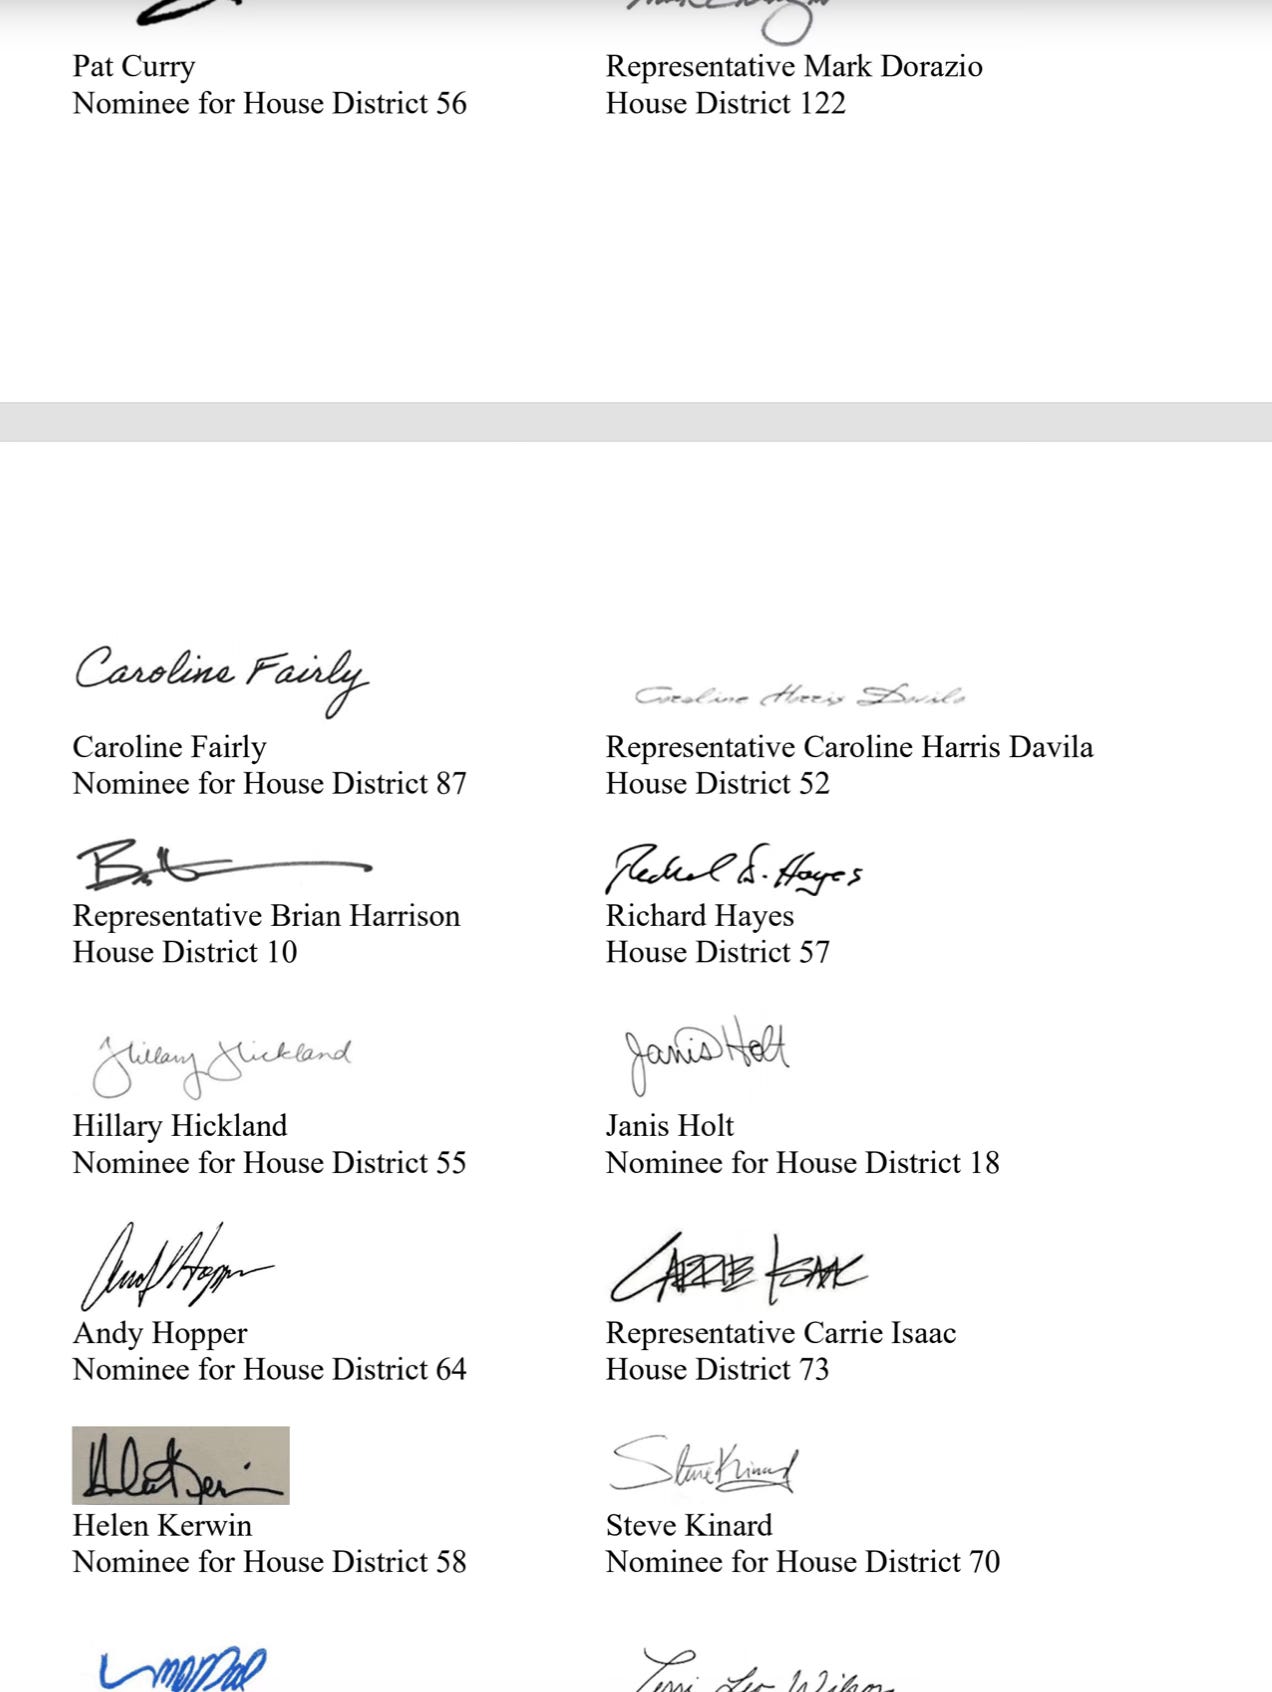 Pat Curry
Nominee for House District 56
Representative Mark Dorazio
House District 122
Caroline Fairly
Caroline Harris Davila
Caroline Fairly
Nominee for House District 87
Representative Caroline Harris Davila
House District 52
Richard S. Hayes
Representative Brian Harrison
House District 10
Richard Hayes
House District 57
Hillary Hickland
Janis Holt
Hillary Hickland
Nominee for House District 55
Janis Holt
Nominee for House District 18
Andy Hopper
CARRIE ISAAC
Andy Hopper
Nominee for House District 64
Representative Carrie Isaac
House District 73
Helen Kerwin
Steve Kinard
Helen Kerwin
Nominee for House District 58
Steve Kinard
Nominee for House District 70
Terri Leo Wilson